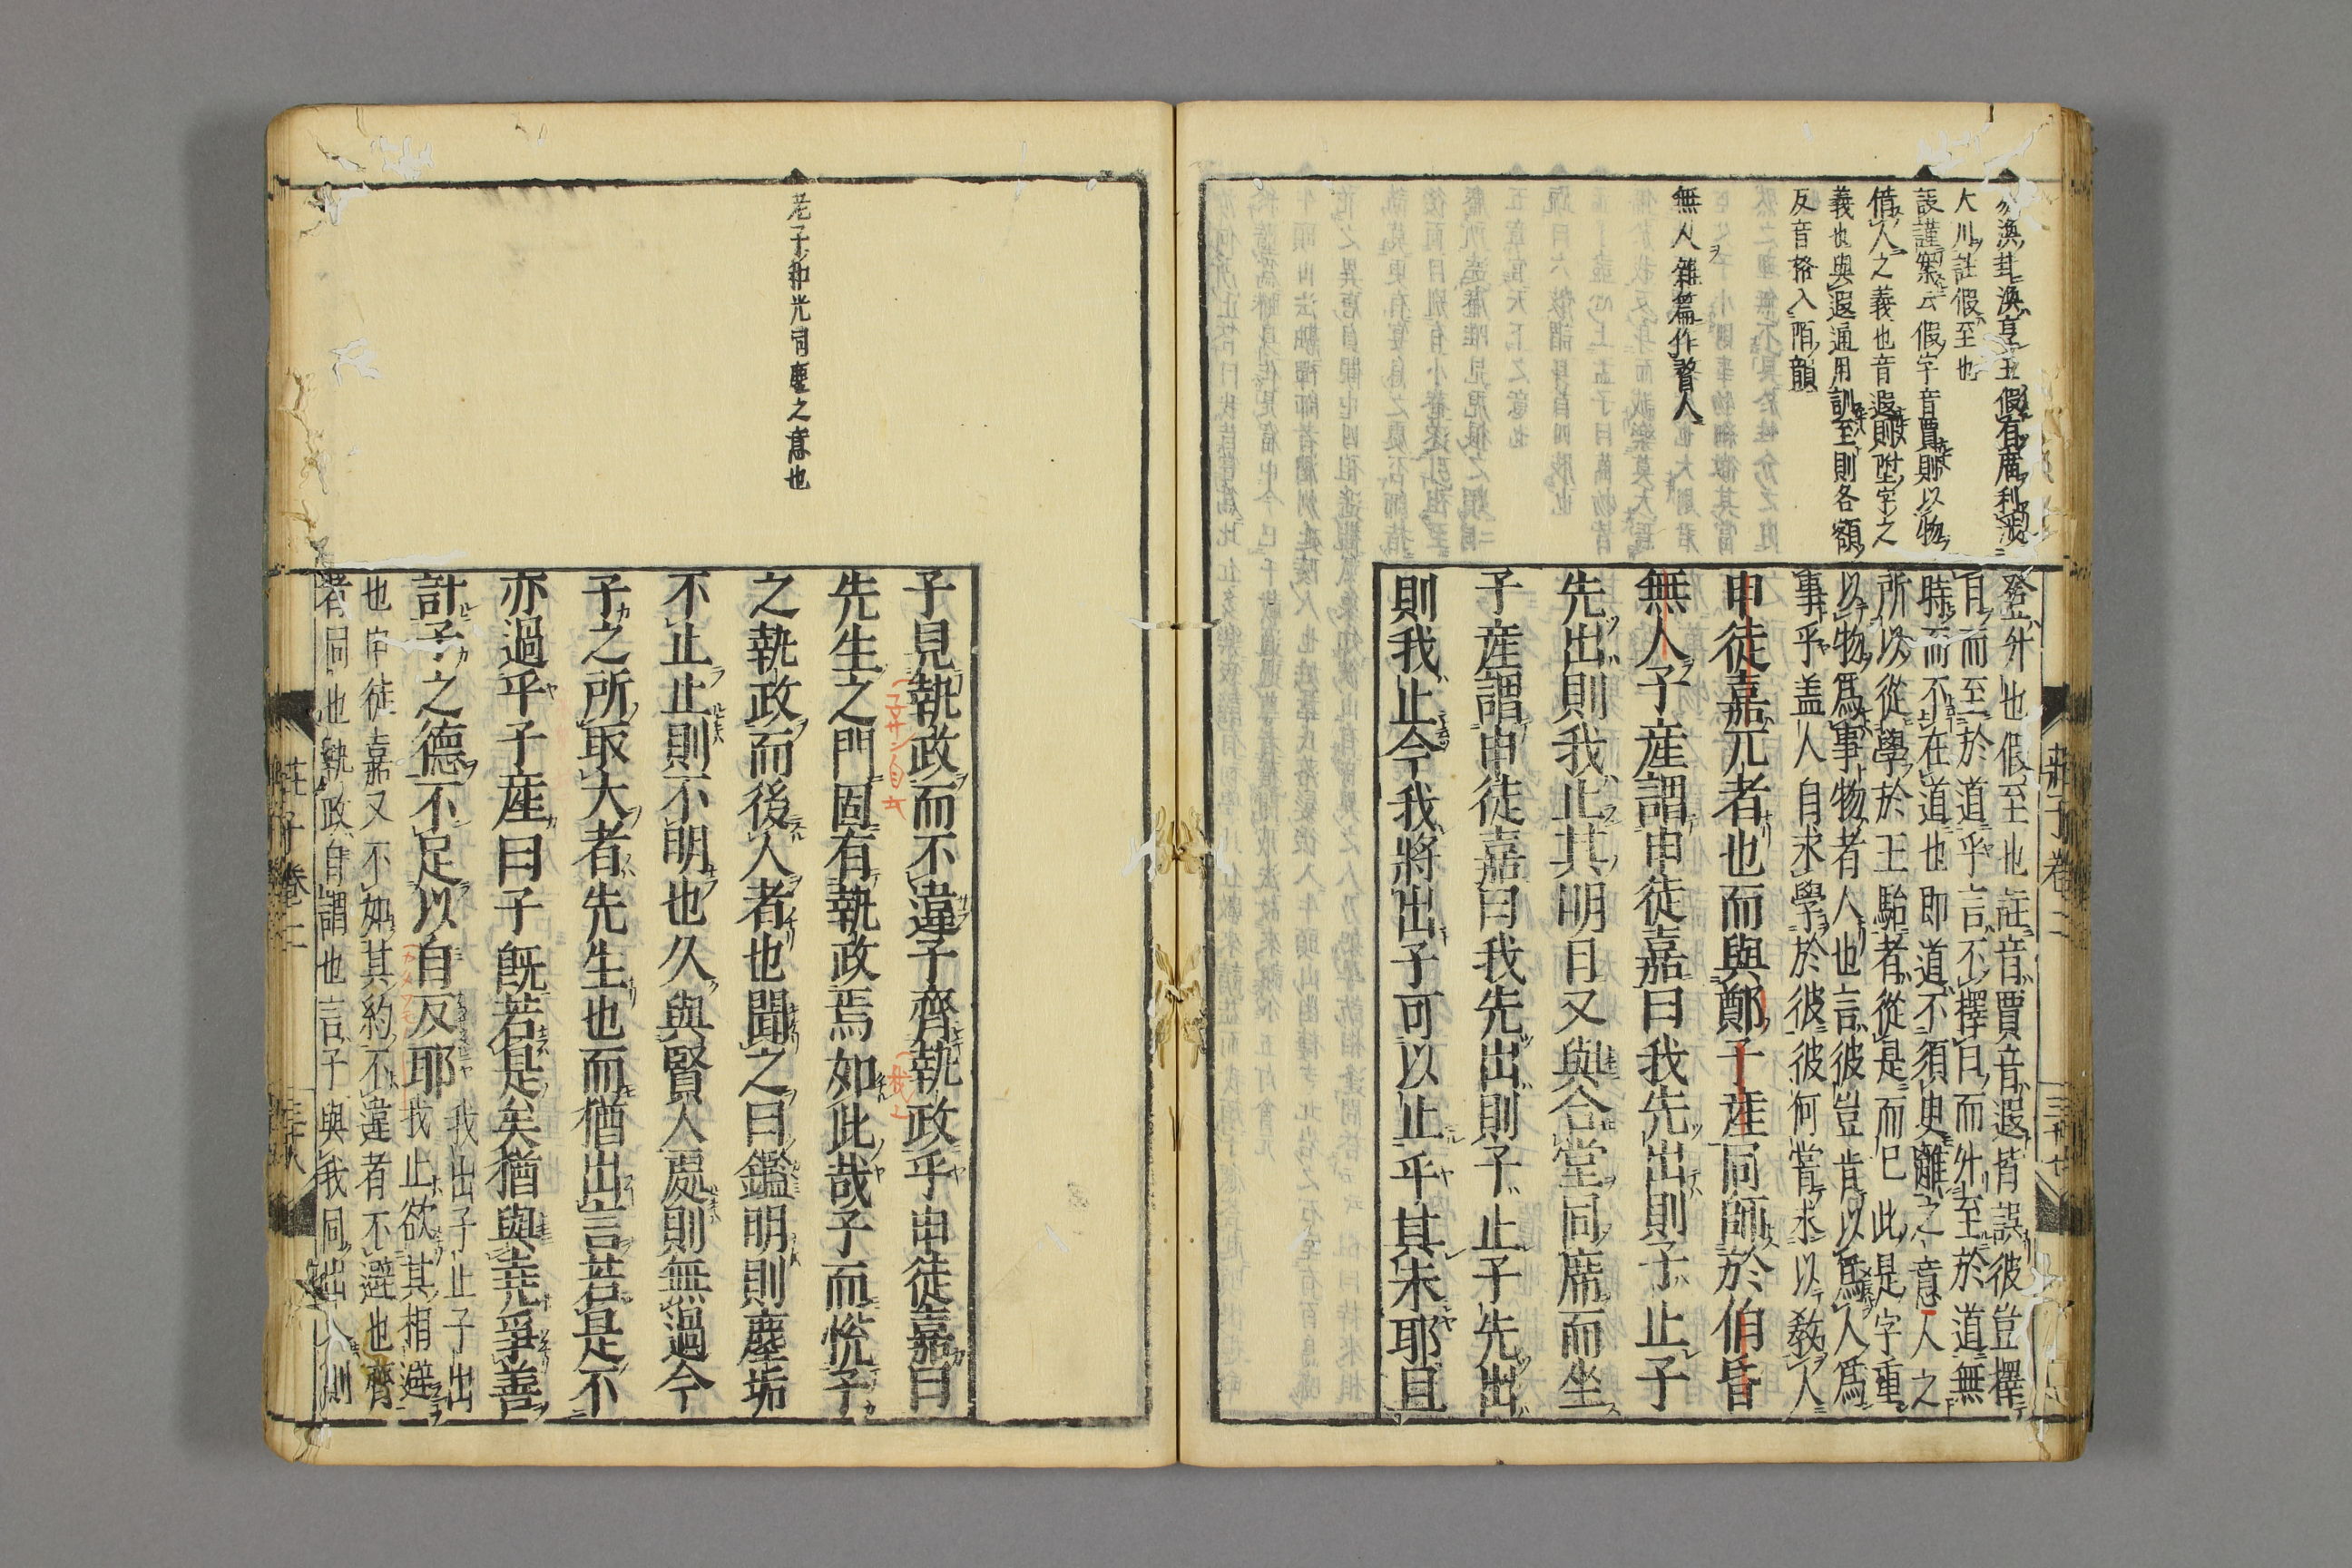 渙卦渙亨王假有廟利渉
大川註假至也
設謹案云假字音賈則以物
借人之義也音遐則陞字之
義也與遐通用訓至則各額
反音格入陌韻
無人雜篇作瞀人
登升也假至也註音賈音遐皆誤彼豈擇
日而至於道乎言不擇日而升至於道無
時而不在道也即道不須臾離之意人之
所以從學於王駘者從是而已此是字重
以物爲事物者人也言彼豈肯以爲人爲
事乎盖人自求學於彼彼何甞求以敎人
申徒嘉兀者也而與鄭子產同師於伯昏
無人子產謂申徒嘉曰我先出則子止子
先出則我止其明日又與合堂同席而坐
子產謂申徒嘉曰我先出則子止子先出
則我止今我將出子可以止乎其未耶且
莊子卷二
老子和光同塵之意也
子見執政而不違子齊執政乎申徒嘉曰
先生之門固有執政焉如此哉子而悅子
之執政而後人者也聞之曰鑑明則塵垢
不止止則不明也久與賢人處則無過今
子之所取大者先生也而猶出言若是不
亦過乎子產曰子旣若是矣猶與堯爭善
計子之德不足以自反耶
我出子止子出
我止欲其相避
也申徒嘉又不如其約不違者不避也齊
者同也執政自謂也言子與我同出入則
莊子卷二